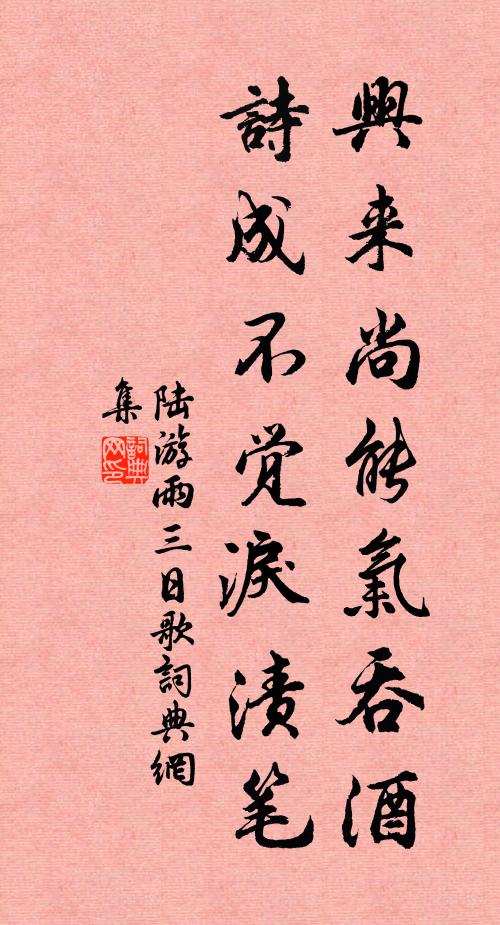 興来尚能氣吞酒
詩成不觉淚漬笔
陆游雨三日歌詞典網
集
詞典
网印